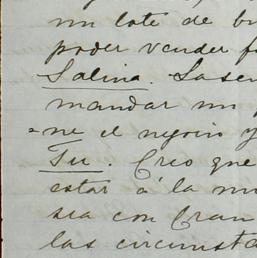 un lote de bu
poder vender f
Salina. La se
mandar un
ne el negocio y
Tu. Creo que
estar á la mi
sea con Gran
las circumsta